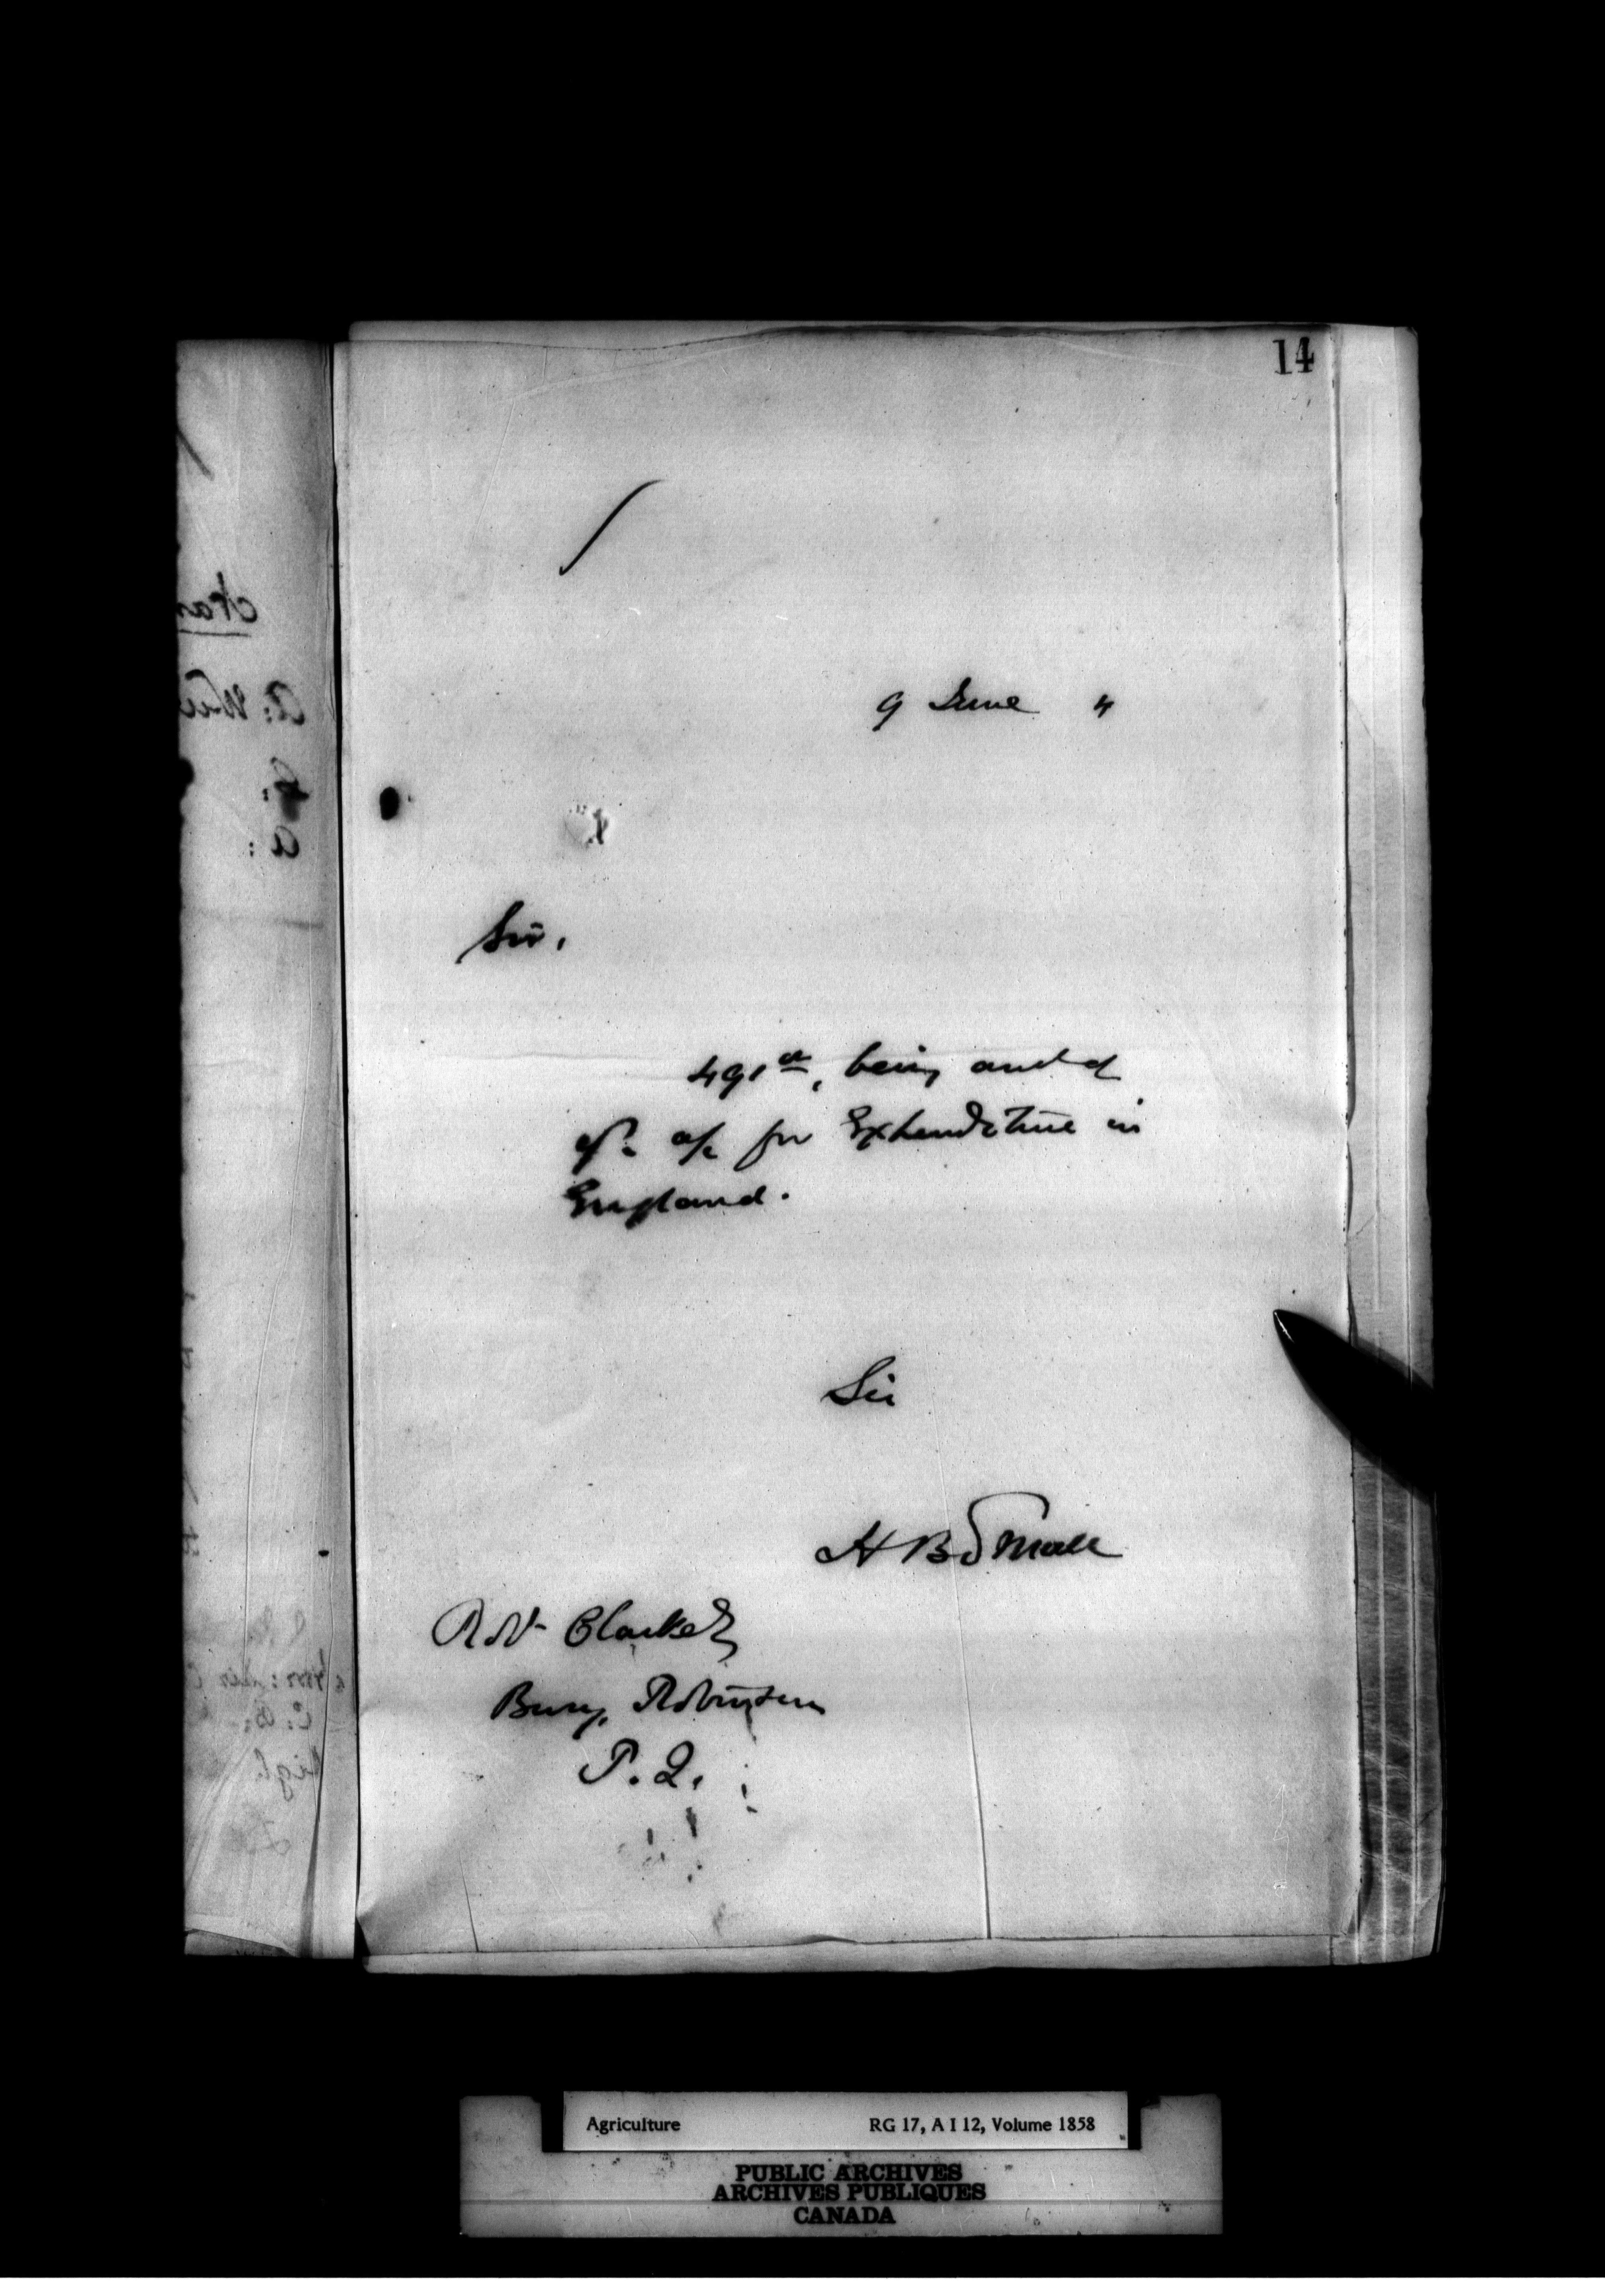 14
9 June "
Sir,
491 00/, being amt of
yr. a/c for Expenditure in
England.
Sir
H B Small
Clarke
Bury, Robinson
P. Q.
Agriculture RG 17, A I 12, Volume 1858
PUBLIC ARCHIVES
ARCHIVES PUBLIQUES
CANADA